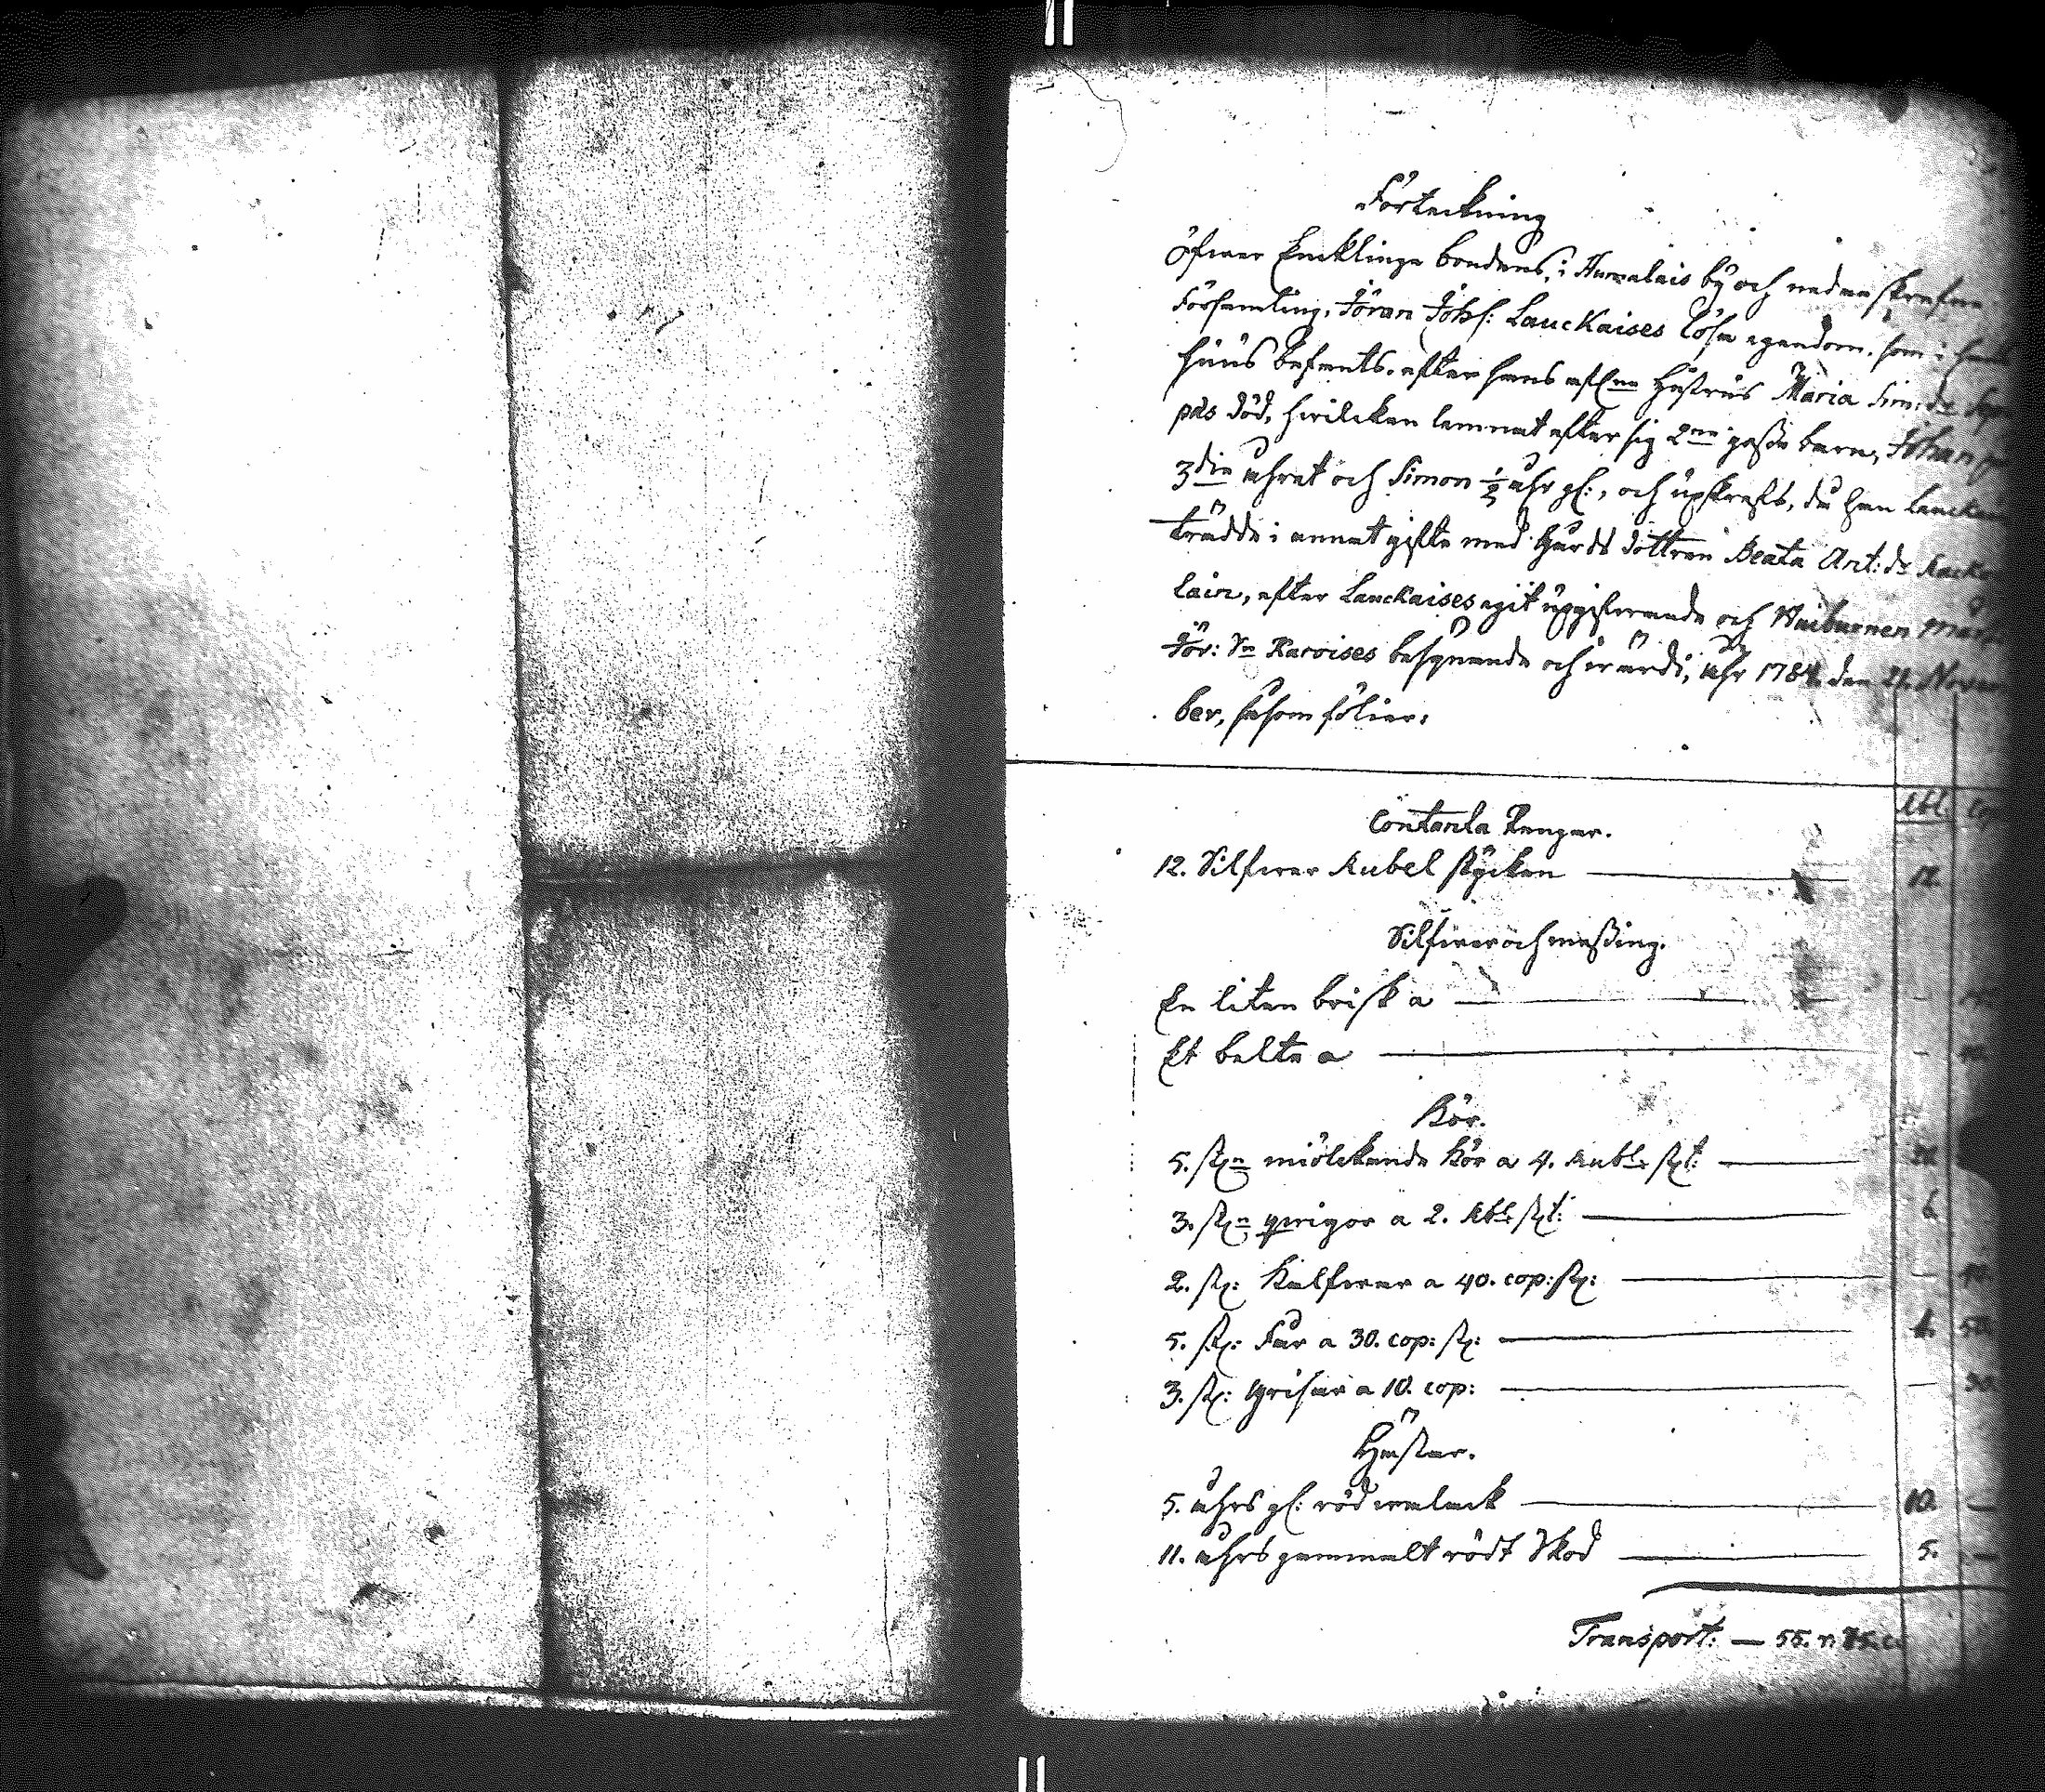 Förteckning
öfwer Encklinge bondens, i Humalais by och nedanskrefne
Församling, Jöran Johs: Lauckaises lösa egendom, som i hans
huus befants, efter hans afl:ne hustrus Maria Sim: dr
död, hwilcken lemnat efter sig 2ne gosse barn, Johan på
3die åhret och Simon ½ åhr gl:, och upskrefs, då han Lauckain
trädde i annat gifte med Hindr: dottren Beata Ant: dr
lain, efter Lauckaises egit upgifwande och Wuiburnen
Jör: Sn Karoises besynande och wärde, åhr 1784. den 21. Novem
ber, såsom följer:
Rbl. Cop
Contanta Pengar.
12. Silfwer Rubel stycken 12.
Silfwer och messing.
En liten briska
Et belte a
Kor.
5. stn miölckande Kor a 4. Rubl. st: 20.
3. stn qwigor a 2. Rbl. st: 6.
2. st: Kalfwar a 40. cop: st:
5. st: Får a 30. cop: st: 1. 50.
3. st: grisar a 10. cop: 30
Hästar.
5. åhrs gl: röd walack 10.
11. åhrs gammalt rödt Stod 5.
Transport: 55. r 75. c.